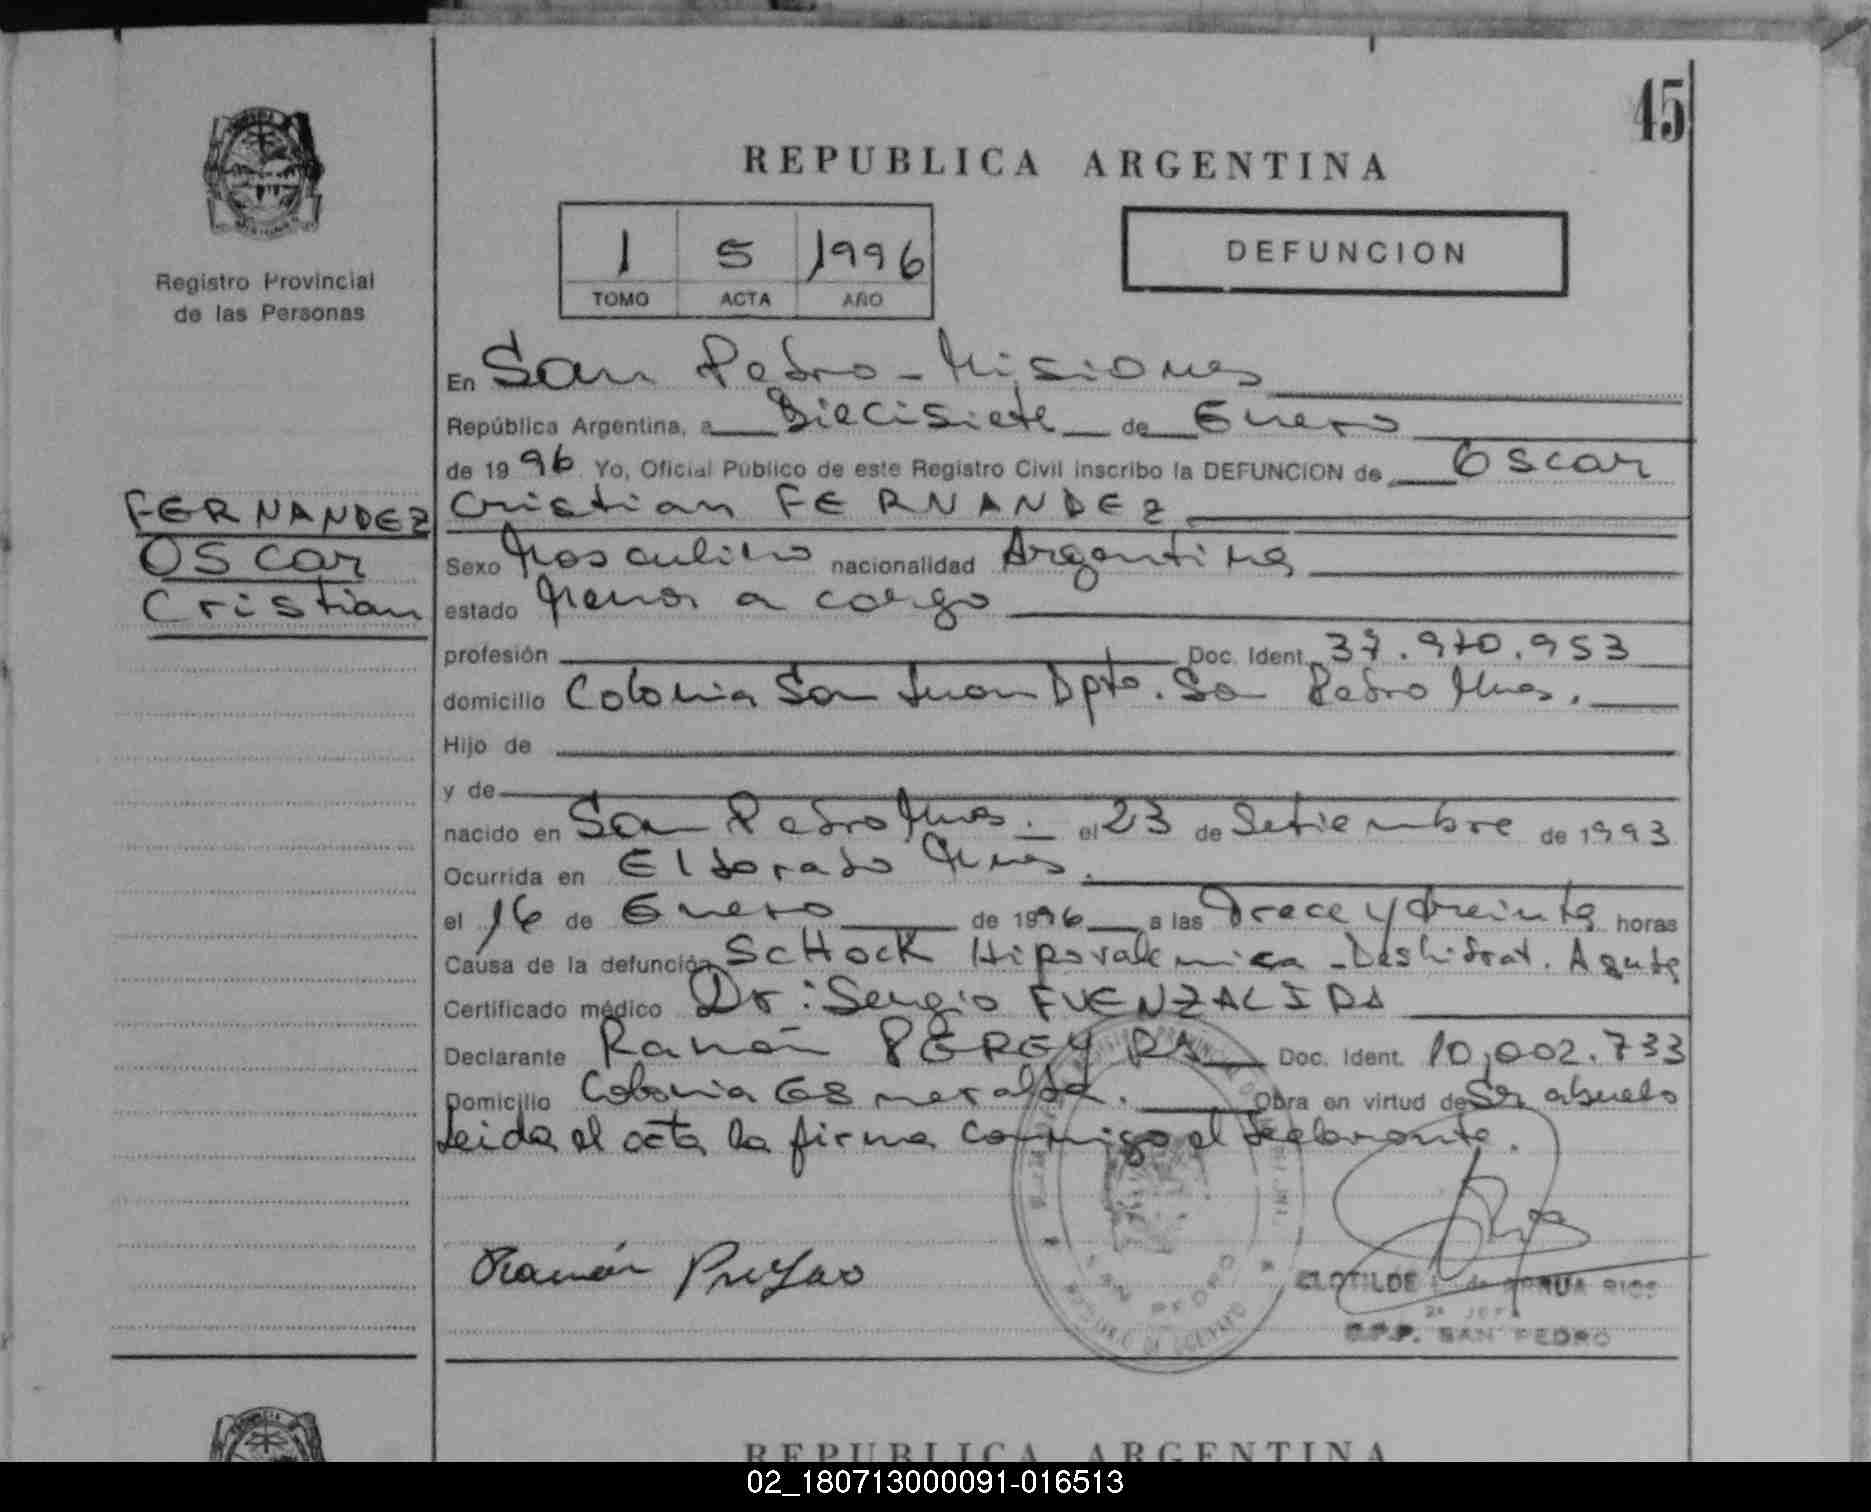 45
REPUBLICA ARGENTINA
1 5 1996
TOMO ACTA AÑO
DEFUNCION
Registro Provincial
de las Personas
FERNANDEZ
Oscar
Cristian
En San Pedro - Misiones
República Argentina, a Diecisiete de Enero
de 1996 Yo, Oficial Público de este Registro Civil inscribo la DEFUNCION de Oscar
Cristian FERNANDEZ
Sexo Masculino nacionalidad Argentina
estado Menor a cargo
profesión Doc. Ident. 37.970.953
domicilio Colonia San Juan Dpto. San Pedro Mnes.
Hijo de
y de
nacido en San Pedro Mnes. el 23 de Setiembre de 1993
Ocurrida en Eldorado Mnes.
el 16 de Enero de 1996 a las Trece y treinta horas
Causa de la defunción SCHock Hipovolemica - Deshidrat. Aguda
Certificado médico Dr: Sergio FUENZALIDA
Declarante Ramón PEREYRA Doc. Ident. 10,002.733
Domicilio Colonia Esmeralda. Obra en virtud de Ser abuelo
Leida el acta la firma conmigo el declarante.
Ramón
SAN PEDRO
CLOTILDE de RIOS
2ª JEFA
SAN PEDRO
REPUBLICA ARGENTINA
02_180713000091-016513